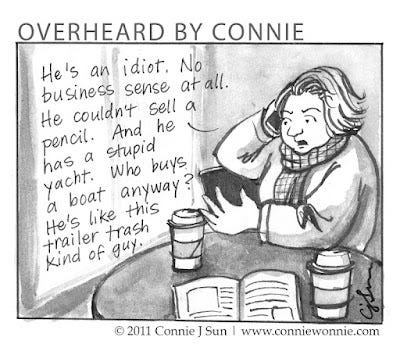 OVERHEARD BY CONNIE
He's an idiot. No
business sense at all.
He couldn't sell a
pencil. And he
has a stupid
yacht. Who buys
a boat anyway?
He's like this
trailer trash
kind of guy.
CJSun
© 2011 Connie J Sun | www.conniewonnie.com